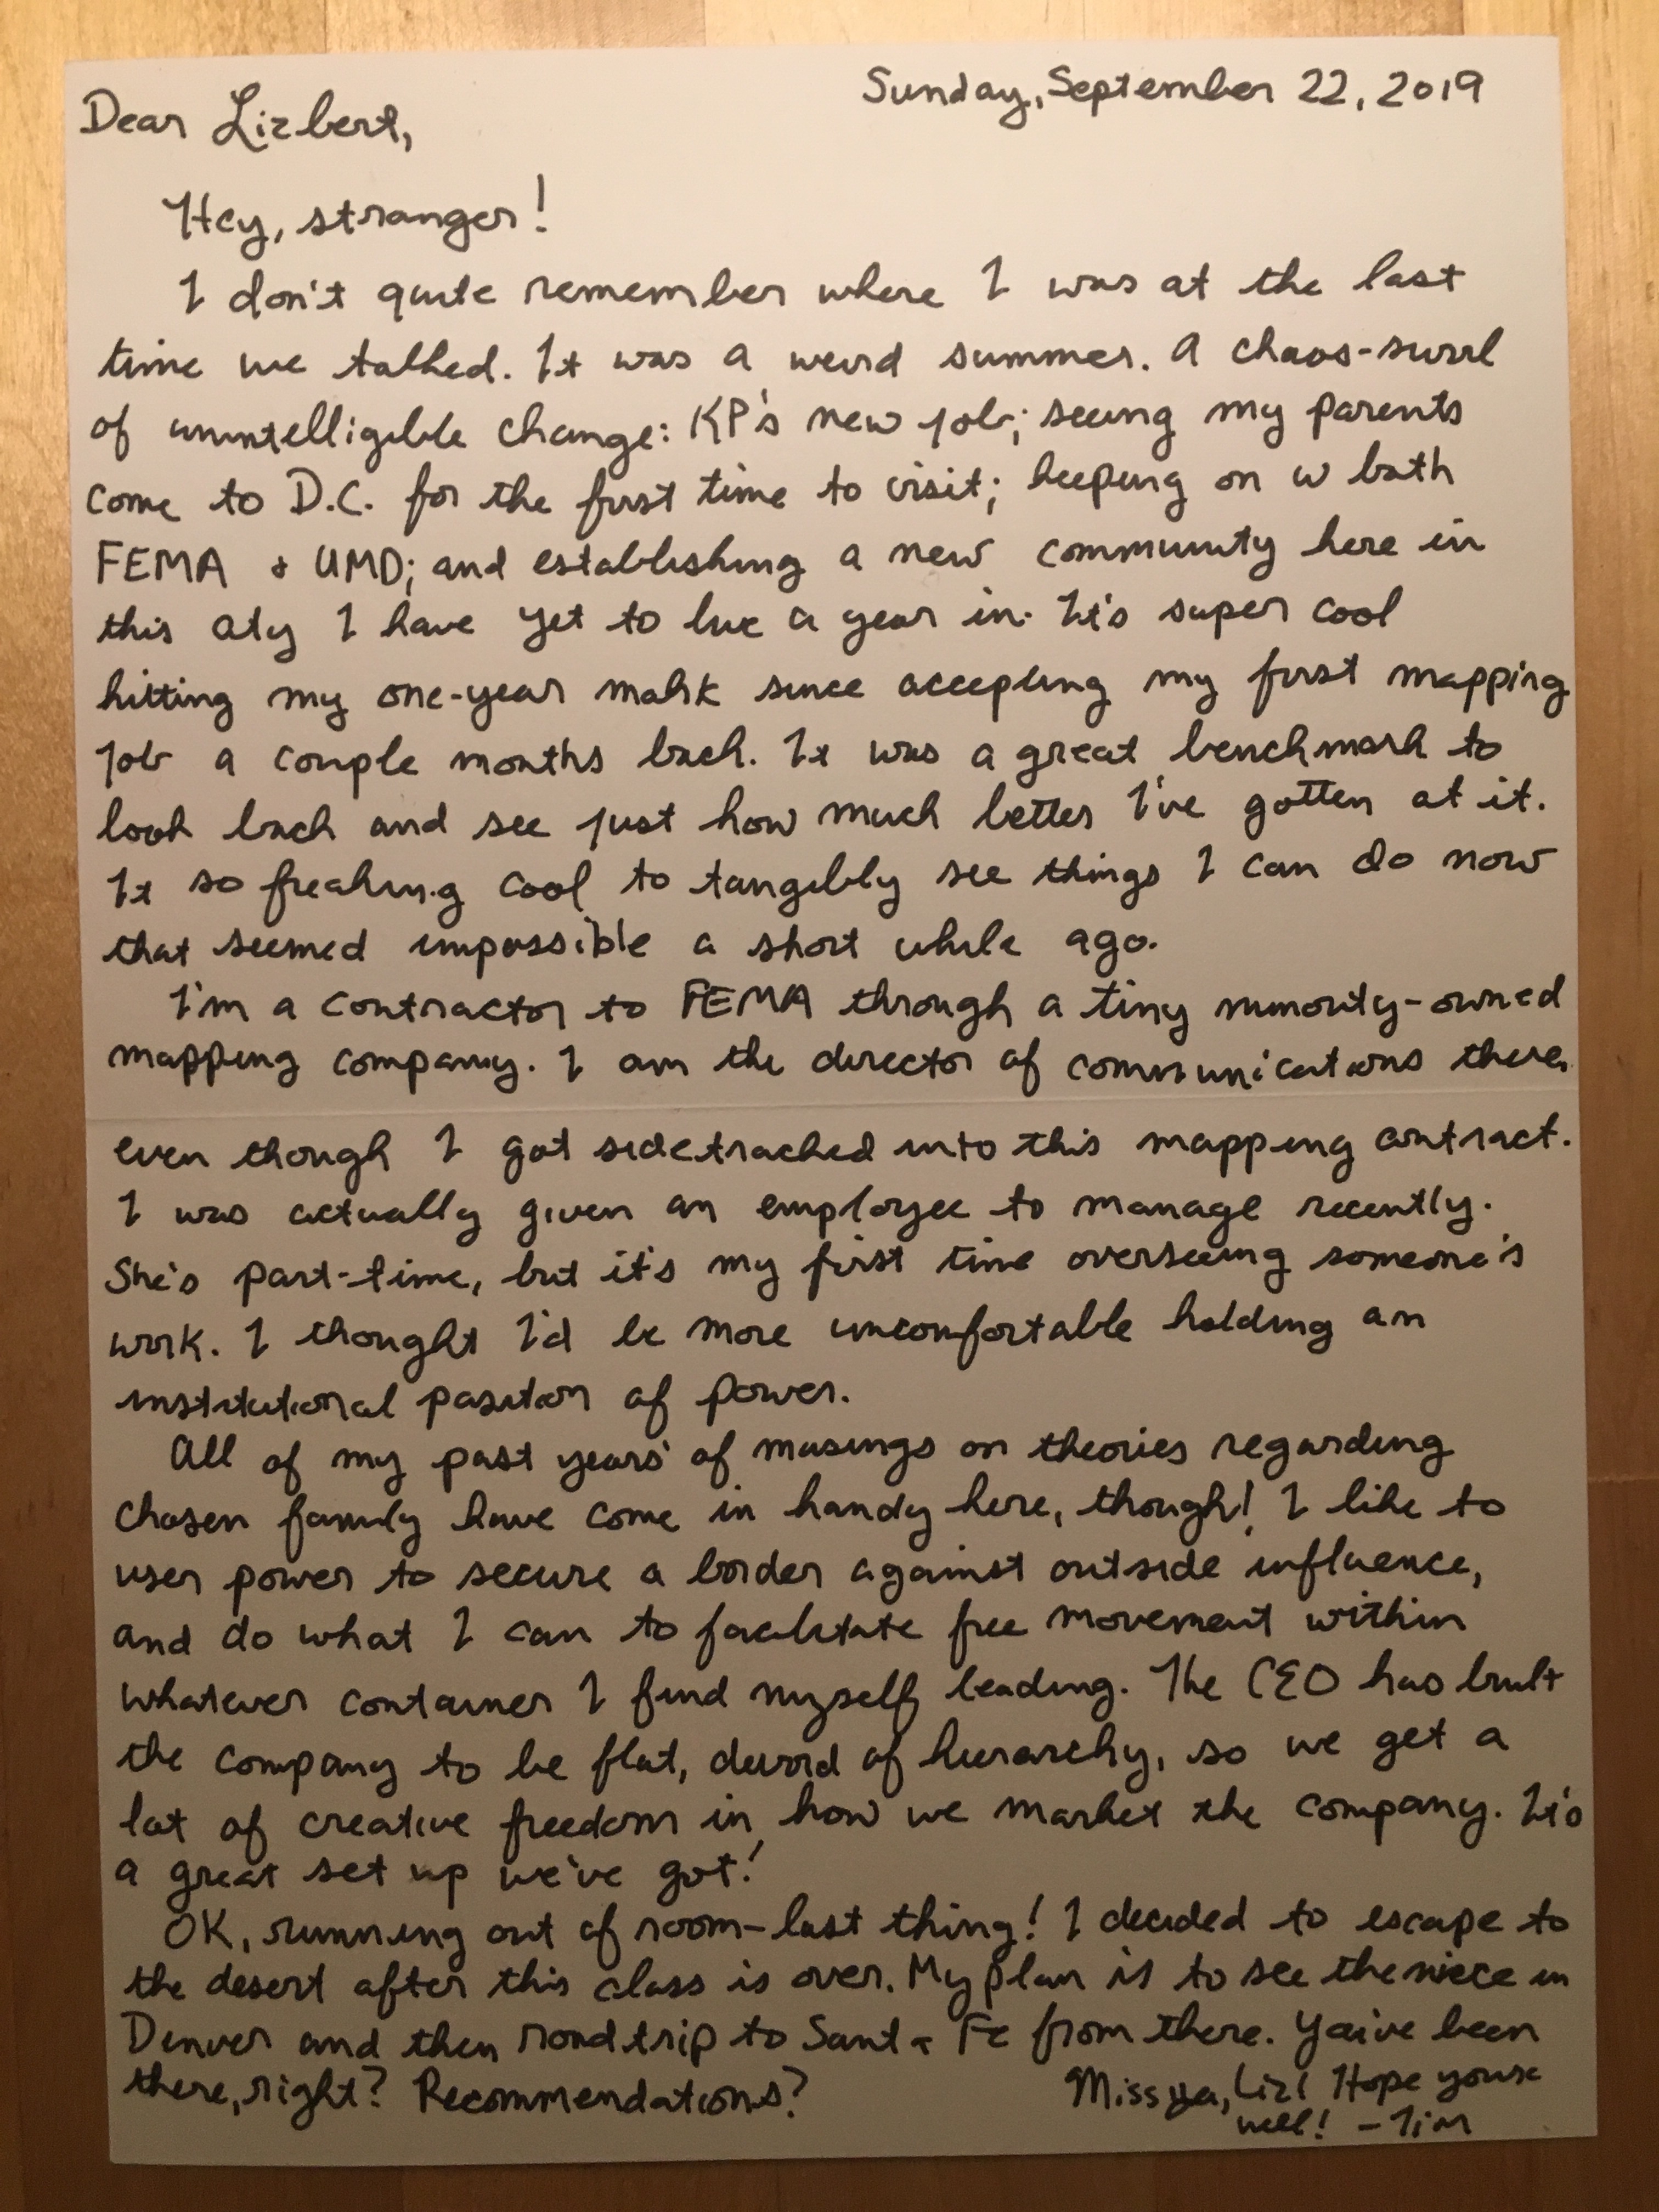 Sunday, September 22, 2019
Dear Lizbert,
Hey, stranger!
I don't quite remember where I was at the last
time we talked. It was a weird summer. A chaos-swirl
of unintelligible change: KP's new job; seeing my parents
come to D.C. for the first time to visit; keeping on w both
FEMA & UMD; and establishing a new community here in
this city I have yet to live a year in. It's super cool
hitting my one-year mark since accepting my first mapping
job a couple months back. It was a great benchmark to
look back and see just how much better I've gotten at it.
It so freaking cool to tangibly see things I can do now
that seemed impossible a short while ago.
I'm a contractor to FEMA through a tiny minority-owned
mapping company. I am the director of communications there,
even though I got sidetracked into this mapping contract.
I was actually given an employee to manage recently.
She's part-time, but it's my first time overseeing someone's
work. I thought I'd be more uncomfortable holding an
institutional position of power.
All of my past years' of musings on theories regarding
chosen family have come in handy here, though! I like to
user power to secure a border against outside influence,
and do what I can to facilitate free movement within
whatever container I find myself leading. The CEO has built
the company to be flat, devoid of hierarchy, so we get a
lot of creative freedom in how we market the company. It's
a great set up we've got!
OK, running out of room-last thing! I decided to escape to
the desert after this class is over. My plan is to see the niece in
Denver and then road trip to Santa Fe from there. You've been
there, right? Recommendations?
Miss ya, Liz! Hope you're
well! - Tim